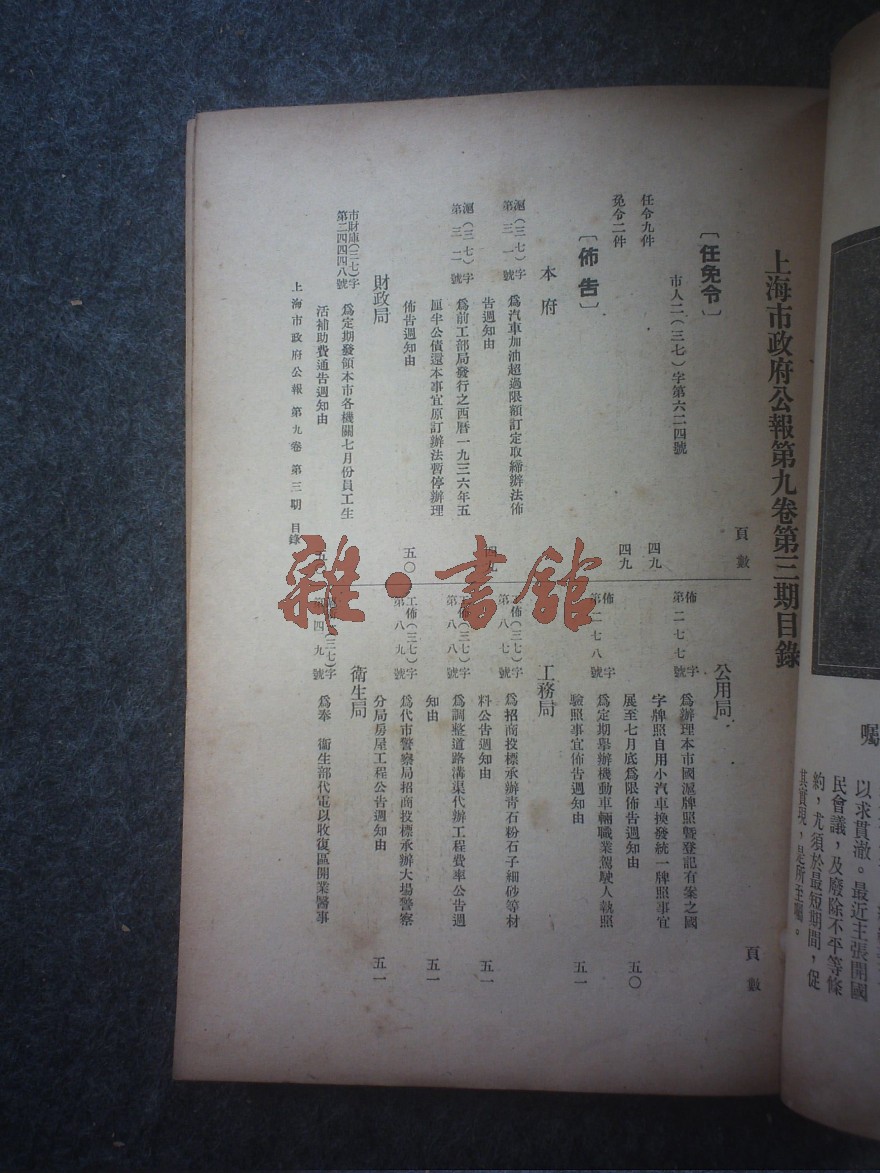 上海市政府公報第九卷第三期目錄
頁數
［任免令］
市人二（三七）字第六二四號
任令九件
四九
免令二件
四九
［佈告］
本府
滬（三七）字
第三一號
爲汽車加油超過限額訂定取締辦法佈
告週知由
滬（三七）字
第三二號
爲前工部局發行之西曆一九三六年五
厘半公債還本事宜原訂辦法暫停辦理
佈告週知由
五〇
財政局
市財庫（三七）字
第二四四四八號
爲定期發領本市各機關七月份員工生
活補助費通告週知由
頁數
公用局
佈字
第二七七號
爲辦理本市國滬牌照曁登記有案之國
字牌照自用小汽車換發統一牌照事宜
展至七月底爲限佈告週知由
五〇
佈字
第二七八號
爲定期舉辦機動車輛職業駕駛人執照
驗照事宜佈告週知由
五一
工務局
工佈（三七）字
第八七號
爲招商投標承辦青石粉石子細砂等材
料公告週知由
五一
工佈（三七）字
第八八號
爲調整道路溝渠代辦工程費率公告週
知由
五一
工佈（三七）字
第八九號
爲代市警察局招商投標承辦大場警察
分局房屋工程公告週知由
五一
衛生局
（三七）字
四九號
爲奉　衛生部代電以收復區開業醫事
上海市政府公報　第九卷　第三期　目錄
囑
以求貫澈。最近主張開國
民會議，及廢除不平等條
約，尤須於最短期間，促
其實現，是所至囑。
雜·書館